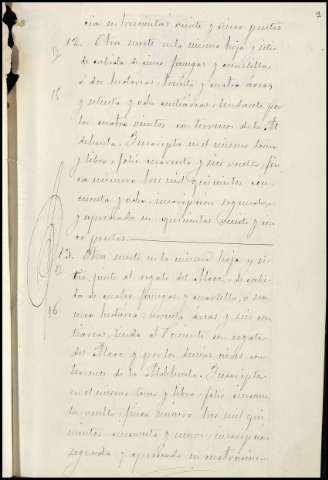 2
cia en trescientas veinte y cinco pesetas
12. Otra suerte en la misma hoja y sitio
de cabida de cinco fanegas y cuartilla
ó dos hectáreas, treinta y cuatro áreas
y setenta y ocho centiáreas, lindante por
los cuatro vientos con terreno de la
dehesa. Inscripta en el mismo tomo
y libro, folio cincuenta y seis vuelto, fin
ca número tres mil quinientos cin
cuenta y ocho, inscripcion segunda
y apreciada en quinientas veinte y cin
co pesetas.
13. Otra suerte en la misma hoja y si
tio, junto al regato del de cabi
da de cuatro fanegas y cuartilla, ó sea
una hectárea, noventa áreas y seis cen
tiáreas; linda al Poniente con regato
del y por los demas aires con
terrenos de la Inscripta
en el mismo tomo y libro, folio sesen
ta vuelto, finca número tres mil qui
nientos cincuenta y nueve, inscripcion
segunda y apreciada en cuatrocien-
12
15
12
16